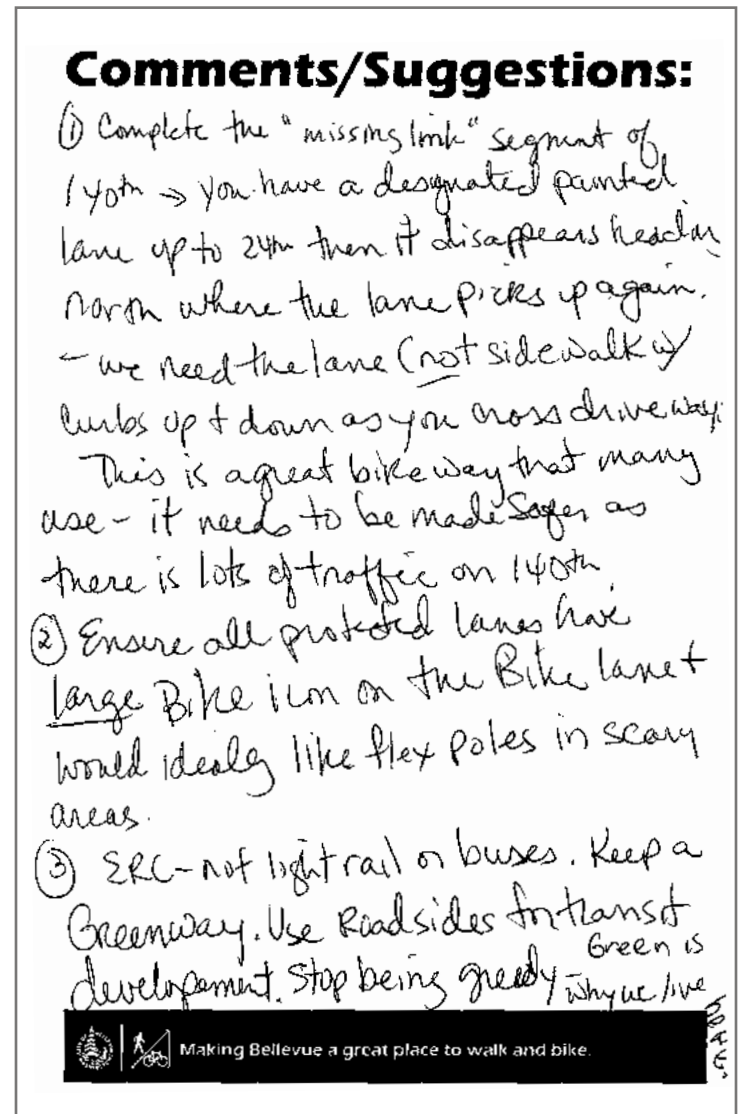 Comments/Suggestions:
① Complete the "missing link" segment of
140th → you have a designated painted
lane up to 24th then it disappears heading
north where the lane picks up again.
- we need the lane (not sidewalk w/
curbs up + down as you cross driveways.
This is a great bikeway that many
use - it needs to be made safer as
there is lots of traffic on 140th
② Ensure all protected lanes have
large Bike icon on the Bike lane +
would idealy like flex poles in scary
areas.
③ ERC - not light rail or buses. Keep a
Greenway. Use Roadsides for transit
development. Stop being greedy
Green is
why we live
here.
Making Bellevue a great place to walk and bike.